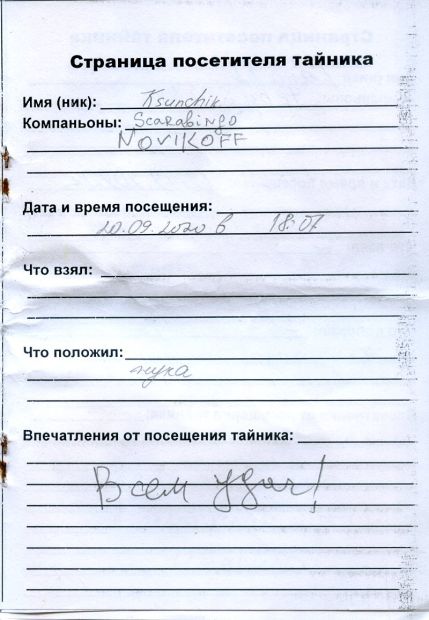 Страница посетителя тайника
Имя (ник): Ksunchik
Компаньоны: Scarabingo
NOVIKOFF
Дата и время посещения:
20.09.2020 в 18:07
Что взял:
Что положил:
жука
Впечатления от посещения тайника:
Всем удач!